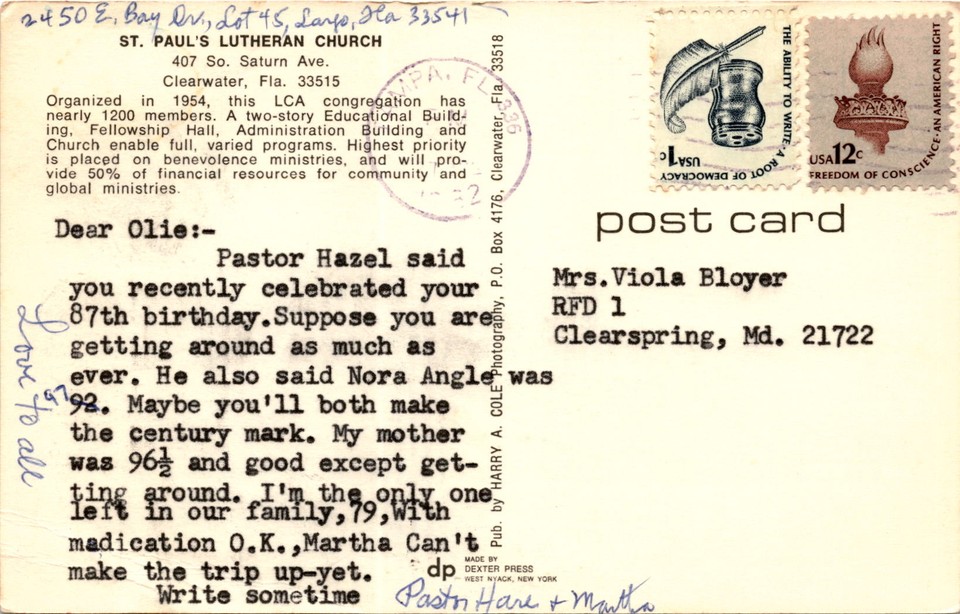 2450 E. Bay Dr., Lot 45, Largo, Fla 33541
ST. PAUL'S LUTHERAN CHURCH
407 So. Saturn Ave.
Clearwater, Fla. 33515
Organized in 1954, this LCA congregation has
nearly 1200 members. A two-story Educational Build-
ing, Fellowship Hall, Administration Building and
Church enable full, varied programs. Highest priority
is placed on benevolence ministries, and will pro-
vide 50% of financial resources for community and
global ministries.
Dear Olie:-
Pastor Hazel said
you recently celebrated your
87th birthday.Suppose you are
getting around as much as
ever. He also said Nora Angle was
97
92. Maybe you'll both make
the century mark. My mother
was 96½ and good except get-
ting around. I'm the only one
left in our family,79,With
madication O.K.,Martha Can't
make the trip up-yet.
Write sometime
Pastor Hare + Martha
Love to all
Pub. by HARRY A. COLE Photography, P.O. Box 4176, Clearwater, Fla. 33518
dp
MADE BY
DEXTER PRESS
WEST NYACK, NEW YORK
MPA, FL 336
THE ABILITY TO WRITE · A ROOT OF DEMOCRACY
USA 1c
USA 12c
FREEDOM OF CONSCIENCE · AN AMERICAN RIGHT
post card
Mrs.Viola Bloyer
RFD 1
Clearspring, Md. 21722